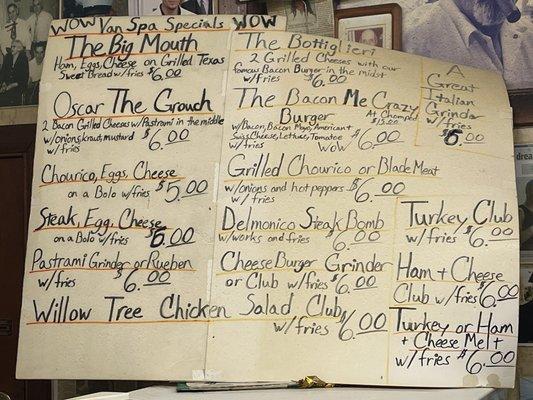 WOW Van Spa Specials WOW
The Big Mouth
Ham, Eggs, Cheese on Grilled Texas
Sweet Bread w/fries $6.00
Oscar The Grouch
2 Bacon Grilled Cheeses w/Pastrami in the middle
w/onions, kraut, mustard $6.00
w/fries
Chourico, Eggs, Cheese
on a Bolo w/fries $5.00
Steak, Egg, Cheese
on a Bolo w/fries $5.00
Pastrami Grinder or Rueben
w/fries $6.00
Willow Tree Chicken Salad Club
w/fries $6.00
The Bottiglieri
2 Grilled Cheeses with our
famous Bacon Burger in the midst
w/fries $6.00
The Bacon Me Crazy
Burger At Chompers
$15.00
w/Bacon, Bacon Mayo, American+
Swiss Cheese, Lettuce, Tomatoe
w/fries WOW $6.00
Grilled Chourico or Blade Meat
w/onions and hot peppers $6.00
w/fries
Delmonico Steak Bomb
w/works and fries $6.00
Cheese Burger Grinder
or Club w/fries $6.00
A
Great
Italian
Grinder
w/fries
$6.00
Turkey Club
w/fries $6.00
Ham + Cheese
Club w/fries $6.00
Turkey or Ham
+ Cheese Melt
w/fries $6.00